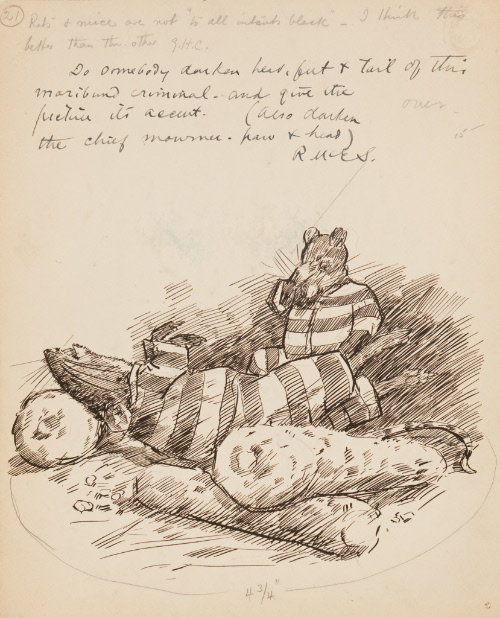 21
Rats & mice are not "to all intents black" – I think this
better than the other G.H.C.
Do somebody darken head, feet & tail of this
moribund criminal – and give the
picture its accent. (Also darken
the chief mourner – paw & head)
R McE S.
over
15
4 3/4"